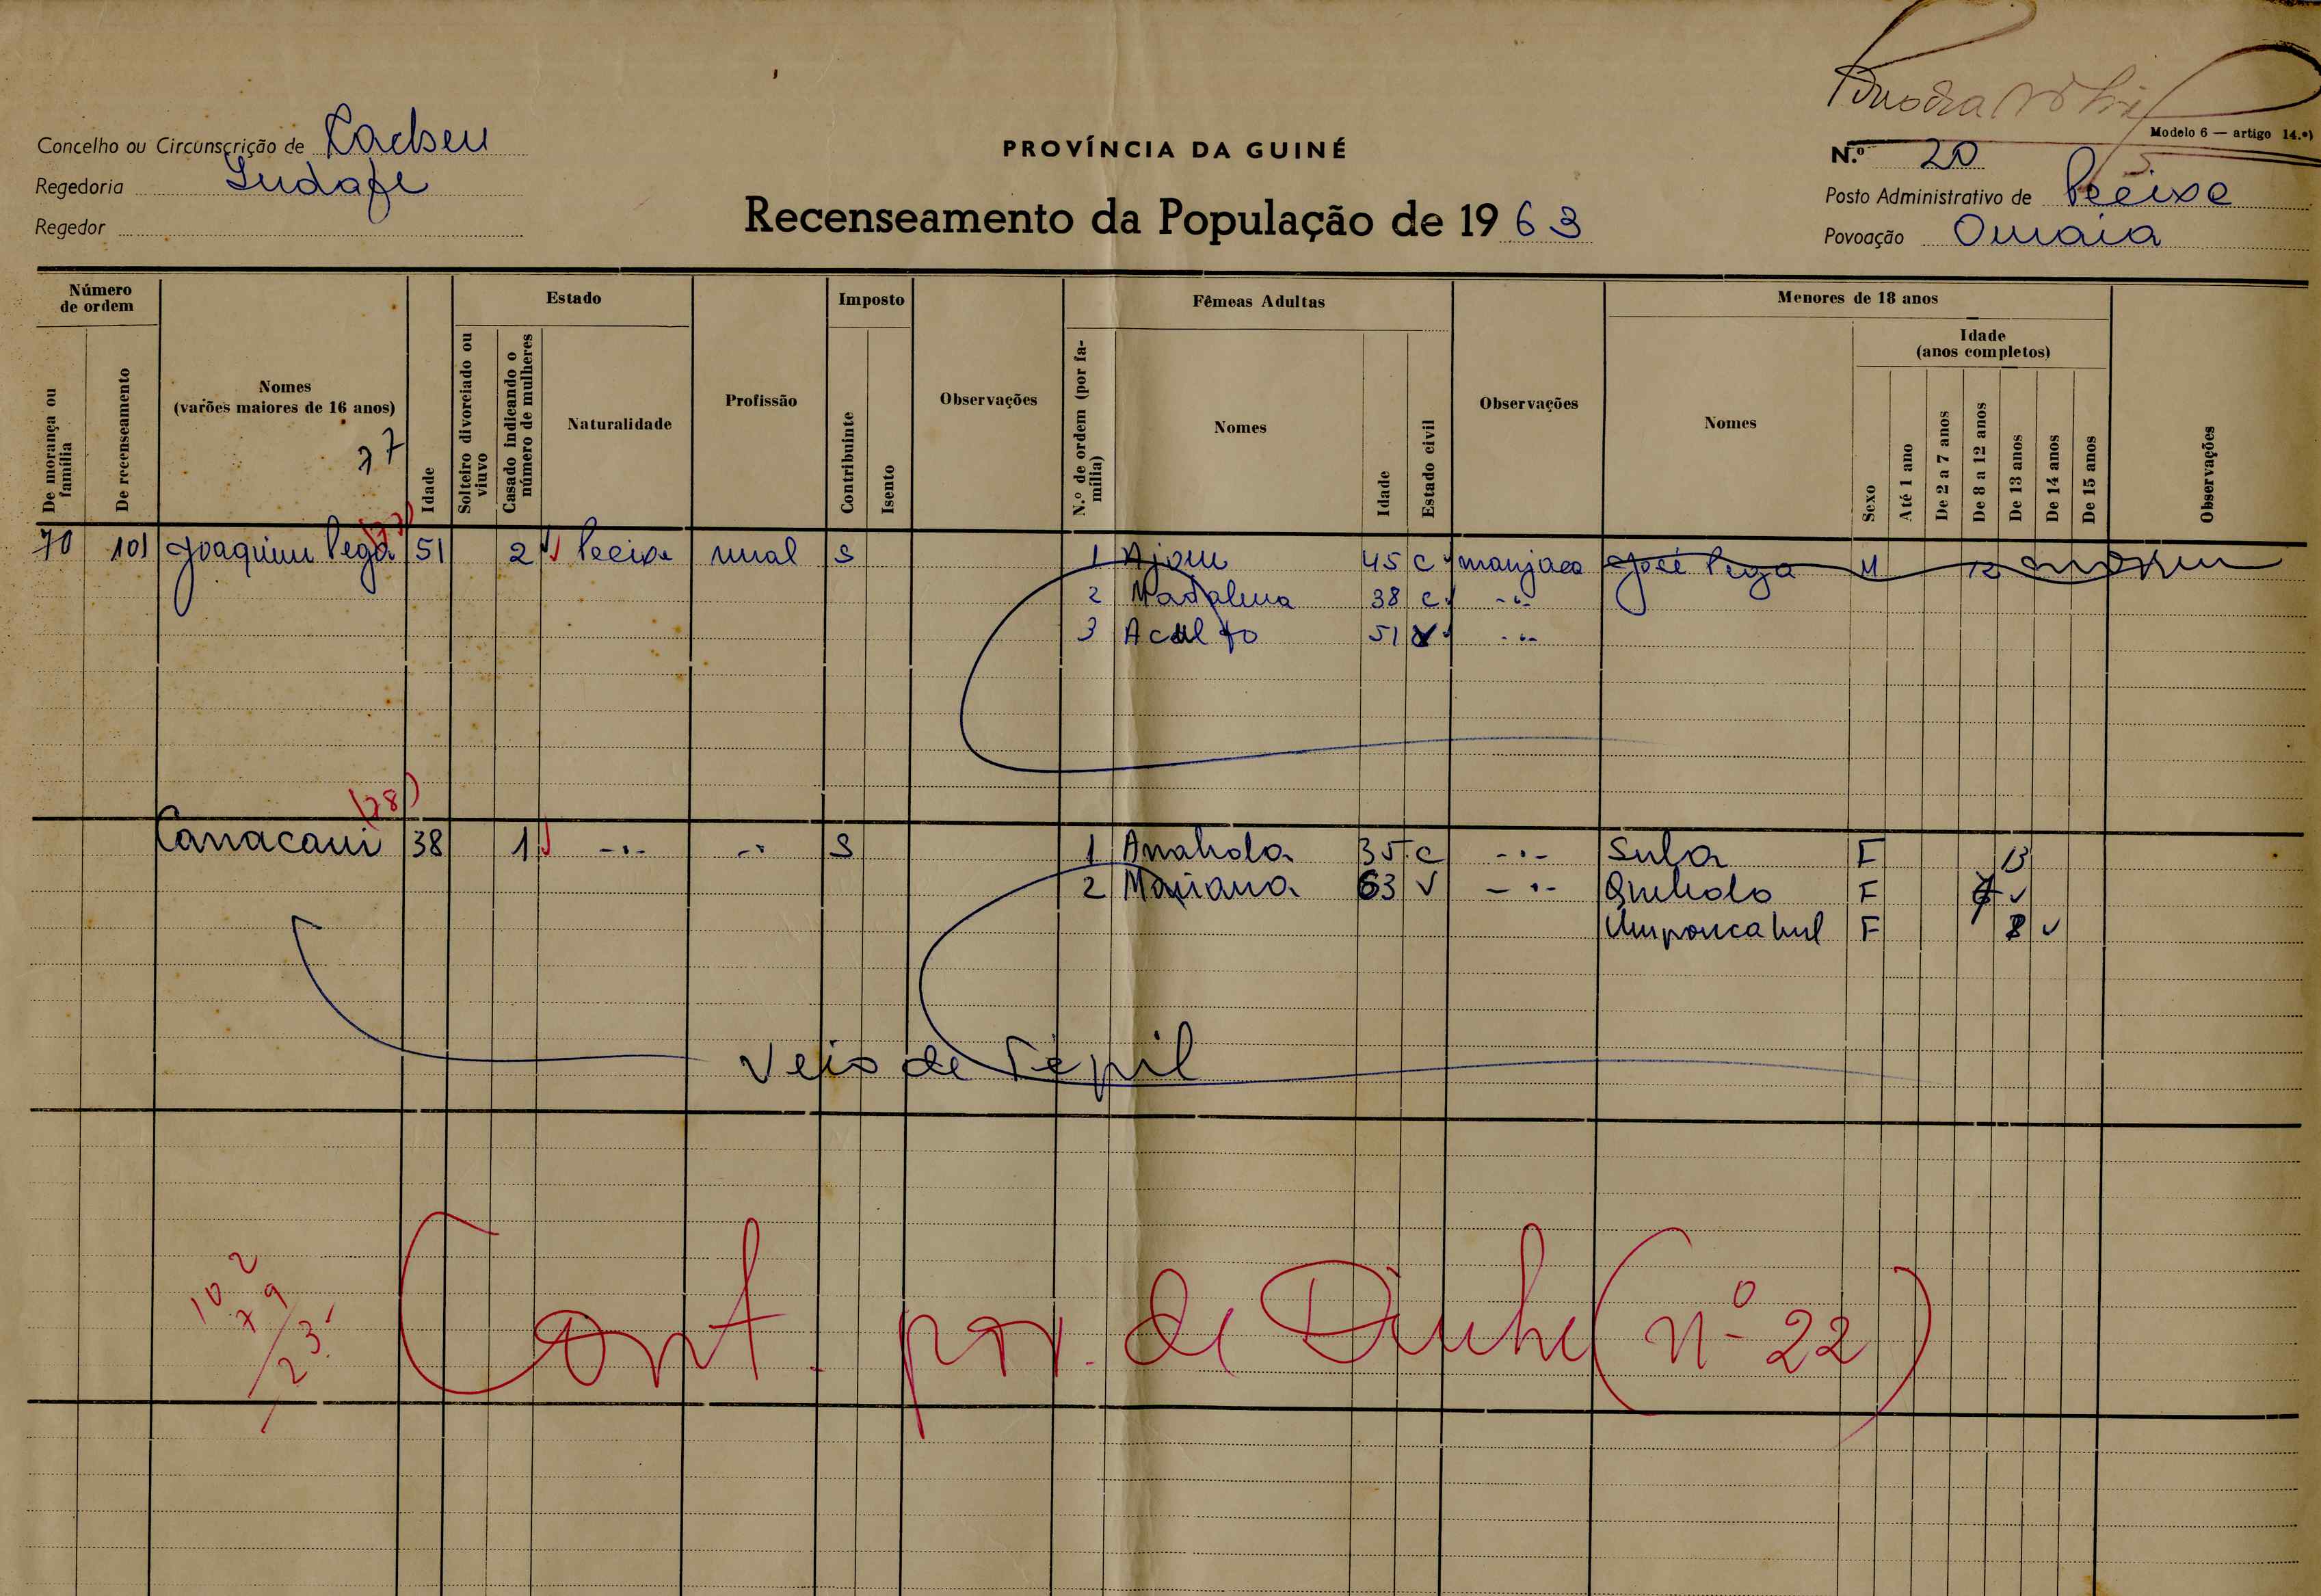 Modelo 6 — artigo 14.º)
Concelho ou Circunscrição de Cacheu
PROVÍNCIA DA GUINÉ
N.º 20
Regedoria
Posto Administrativo de Pecixe
Regedor
Recenseamento da População de 1963
Povoação Omaia
Número de ordem
Estado
Imposto
Fêmeas Adultas
Menores de 18 anos
Idade
(anos completos)
De morança ou família
De recenseamento
Nomes
(varões maiores de 16 anos)
77
Idade
Solteiro divorciado ou viuvo
Casado indicando o número de mulheres
Naturalidade
Profissão
Contribuinte
Isento
Observações
N.º de ordem (por família)
Nomes
Idade
Estado civil
Observações
Nomes
Sexo
Até 1 ano
De 2 a 7 anos
De 8 a 12 anos
De 13 anos
De 14 anos
De 15 anos
Observações
(77)
70 101 Joaquim Pega 51 2 Pecixe rural S 1 Ajom 45 C manjaco José Pega M 12
2 Madalena 38 C -"-
3 51 -"-
(78)
38 1 -"- -"- S 1 35 C -"- Sula F 13
2 Mariana 63 V -"- F
F 8
Veio de
102
79
23
Cont. por. de (nº 22)